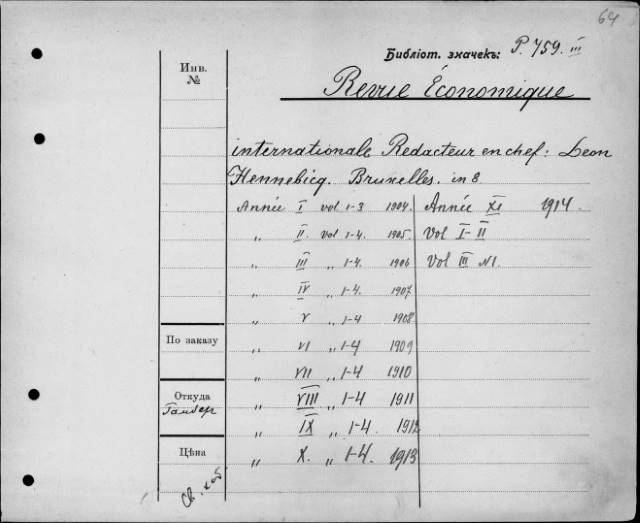 64
Библіот. значекъ: P. 759. III
Инв. №
Revue Économique
internationale Redacteur en chef: Leon
Hennebicq. Bruxelles. in 8
Année I vol 1-3 1904. Année XI 1914.
„ II vol 1-4. 1905. Vol I-II
„ III „ 1-4. 1906 Vol III N1.
„ IV „ 1-4. 1907
„ V „ 1-4 1908
По заказу
„ VI „ 1-4 1909
„ VII „ 1-4 1910
Откуда
„ VIII „ 1-4 1911
„ IX „ 1-4. 1912
Цѣна
„ X. „ 1-4. 1913